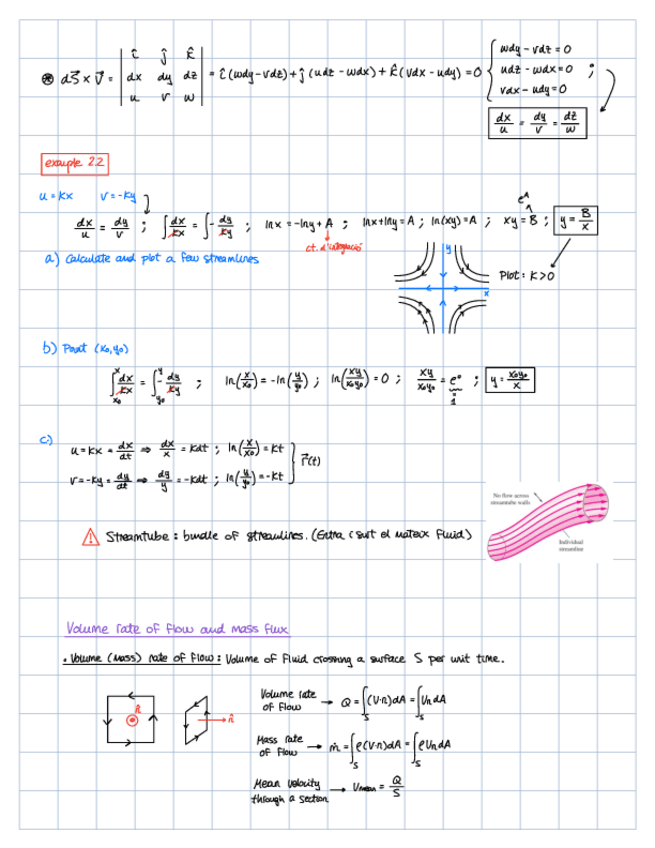 ⊛ dS⃗ × V⃗ = | î ĵ k̂ ; dx dy dz ; u v w | = î (wdy - vdz) + ĵ (udz - wdx) + k̂ (vdx - udy) = 0 { wdy - vdz = 0 ; udz - wdx = 0 ; vdx - udy = 0 ;
dx/u = dy/v = dz/w
example 2.2
u = kx v = -ky
dx/u = dy/v ; ∫ dx/kx = ∫ - dy/ky ; lnx = -lny + A ; lnx + lny = A ; ln(xy) = A ; xy = B ; y = B/x
e^A
ct. d'integració
a) Calculate and plot a few streamlines
y
x
Plot: K>0
b) Point (x₀,y₀)
∫_{x₀}^{x} dx/kx = ∫_{y₀}^{y} - dy/ky ; ln(x/x₀) = -ln(y/y₀) ; ln(xy/x₀y₀) = 0 ; xy/x₀y₀ = e⁰ ; y = x₀y₀/x
1
c)
u = kx = dx/dt ⇒ dx/x = kdt ; ln(x/x₀) = kt
v = -ky = dy/dt ⇒ dy/y = -kdt ; ln(y/y₀) = -kt
r⃗(t)
No flow across
streamtube walls
Individual
streamline
⚠ Streamtube : bundle of streamlines. (Entra i surt el mateix fluid)
Volume rate of flow and mass flux
• Volume (Mass) rate of flow : Volume of Fluid crossing a surface S per unit time.
n̂
n̂
Volume rate
of flow → Q = ∫_S (V·n)dA = ∫_S Vn dA
Mass rate
of flow → ṁ = ∫_S ρ(V·n)dA = ∫_S ρVn dA
Mean velocity
through a section → Vmean = Q/S